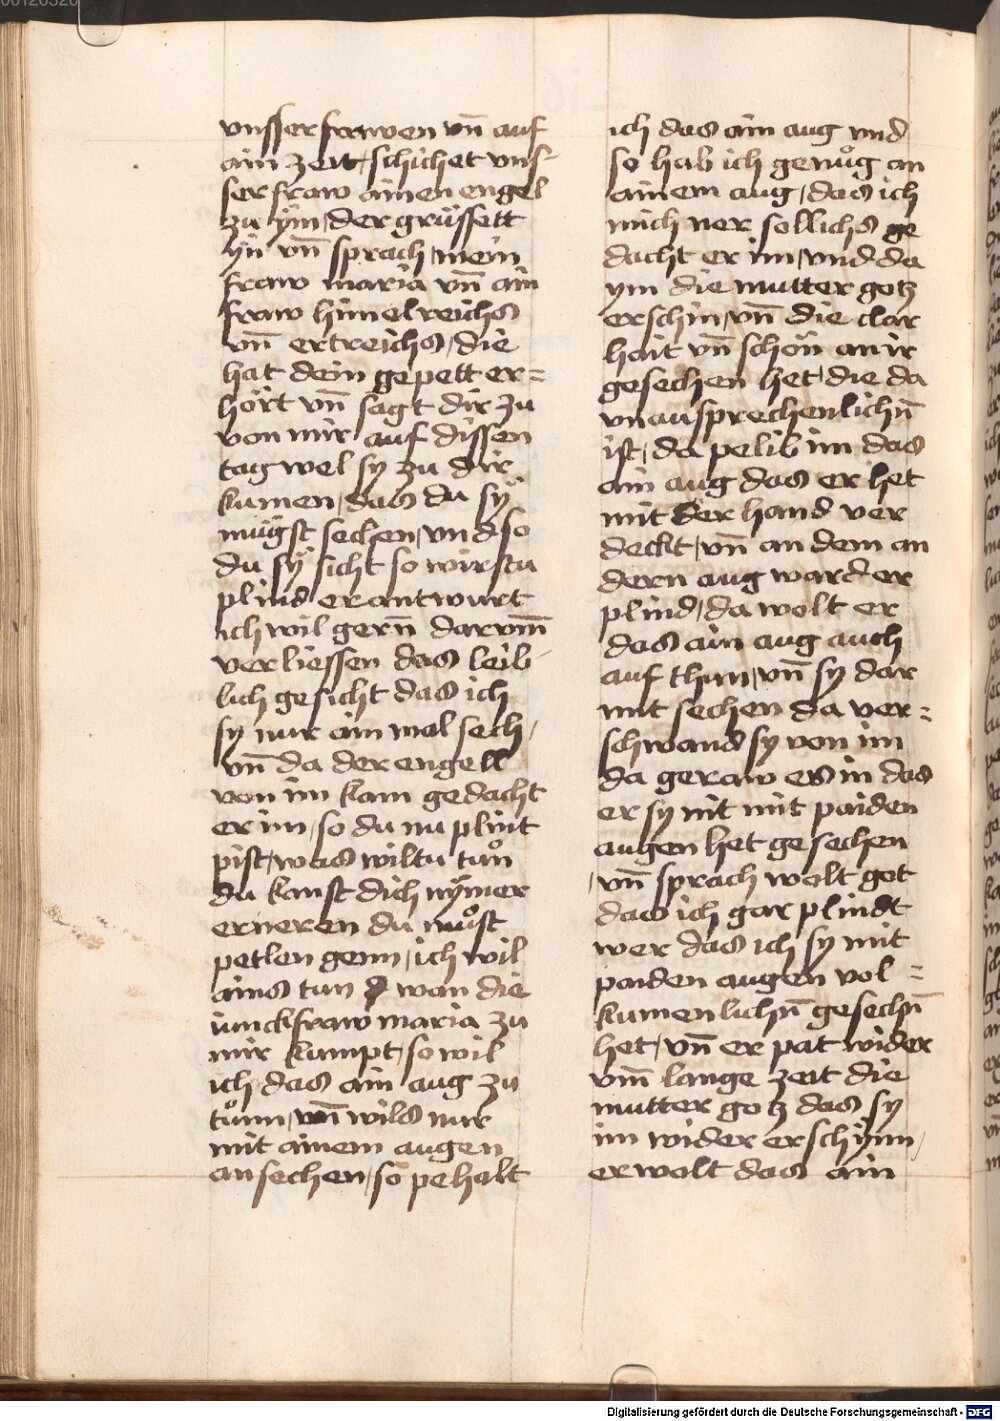 vnsser frawen vn̄ auf
ain zeit schichet vns-
ser fraw ainen engel
zu ÿm / der grüssett
ÿn vn̄ sprach / mein
fraw maria vn̄ ain
fraw himelreichs
vn̄ ertreichs / die
hat dein gepett er=
hört vn̄ sagt dir zu
von mir auf dissen
tag wel sy zu dir
kumen / das du sÿ
mügst sechen / vnd so
du sÿ sicht so wirstu
plind er antwurt
ich wil gern̄ darvm̄
verliessen das leib-
lich gesicht das ich
sy nur ain mal sech /
vn̄ da der engell
von im kam gedacht
er im / so du nu plint
pist / was wiltu tůn
du kanst dich nÿmer
erneren du můst
petlen genn / ich wil
ains tun wan die
iunckfraw maria zu
mir kumpt / so wil
ich das ain aug zu
tůnn / vn̄ wils nur
mit ainem augen
an sechen / so pehalt
ich das ain aug vnd
so hab ich genůg an
ainem aug / das ich
mich ner sollichs ge
dacht er im / vnd da
ym die mutter gotz
erschin / vn̄ die clar
hait vn̄ schön an ir
gesechen het / die da
vnaussprechenlichn̄
ist / da pelib im das
ain aug das er het
mit der hand ver
deckt / vn̄ an dem an
dern aug ward er
plind / da wolt er
das ain aug auch
auf thun / vn̄ sy dar
mit sechen da ver=
schwand sy von im
da geraw es in das
er sy nit mit paiden
augen het gesechen
/ vn̄ sprach wolt got
das ich gar plindt
wer das ich sy mit
paiden augen vol=
kumenlichn̄ gesechn̄
het / vn̄ er pat wider
vm̄ lange zeit die
mutter gotz das sy
im wider erschinn /
er wolt das ain
Digitalisierung gefördert durch die Deutsche Forschungsgemeinschaft - DFG